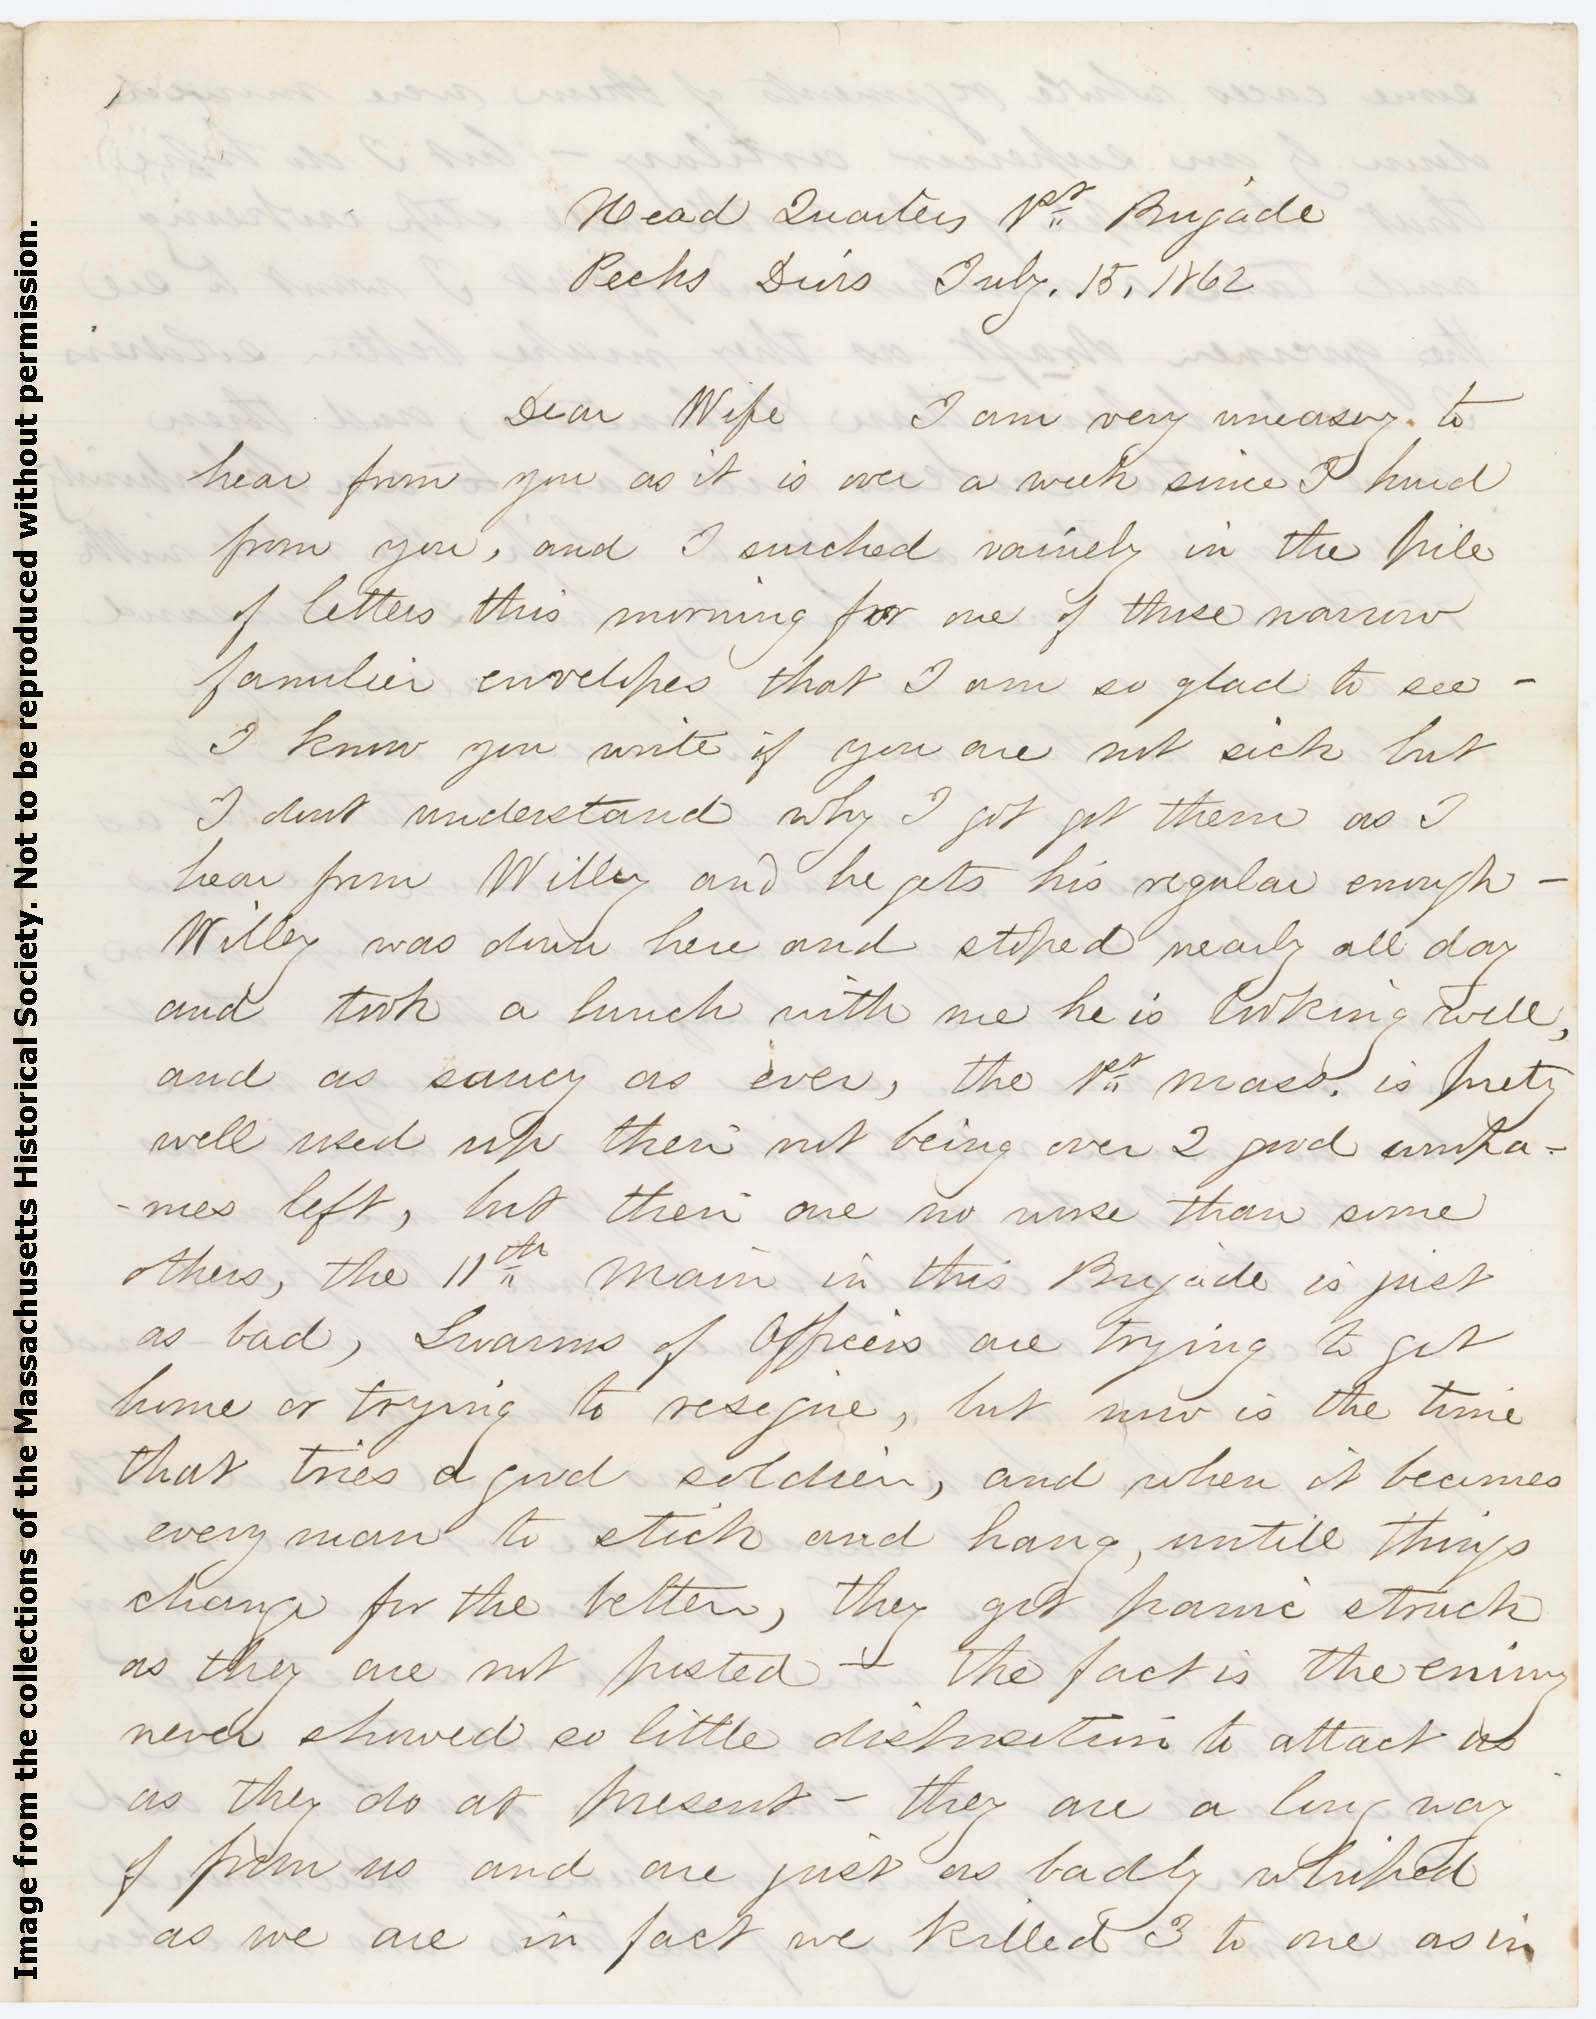 Head Quarters 1st Brigade
Pecks Divis July. 15, 1862
Dear Wife I am very uneasey. to
hear from you as it is over a week since I hurd
from you, and I surched vainely in the pile
of letters this morning for one of those narrow
familier envelopes that I am so glad to see -
I know you write if you are not sick but
I dont understand why I got got them as I
hear from Willey and he gets his regular enough -
Willey was down here and stoped nearly all day
and took a lunch with me he is looking well,
and as saucy as ever, the 1st Mass. is prety
well used up their not being over 2 good compa-
-nies left, but their are no worse than some
others, the 11th Main in this Brigade is just
as bad, Swarms of Officers are trying to get
home or trying to resigne, but now is the time
that tries a good soldier, and when it becomes
every man to stick and hang, untill things
change for the better, they get panic struck
as they are not posted - the fact is the enimy
never showed so little disposition to attact us
as they do at present - they are a long way
of from us and are just as badly whiped
as we are in fact we killed 3 to one as in
Image from the collections of the Massachusetts Historical Society. Not to be reproduced without permission.